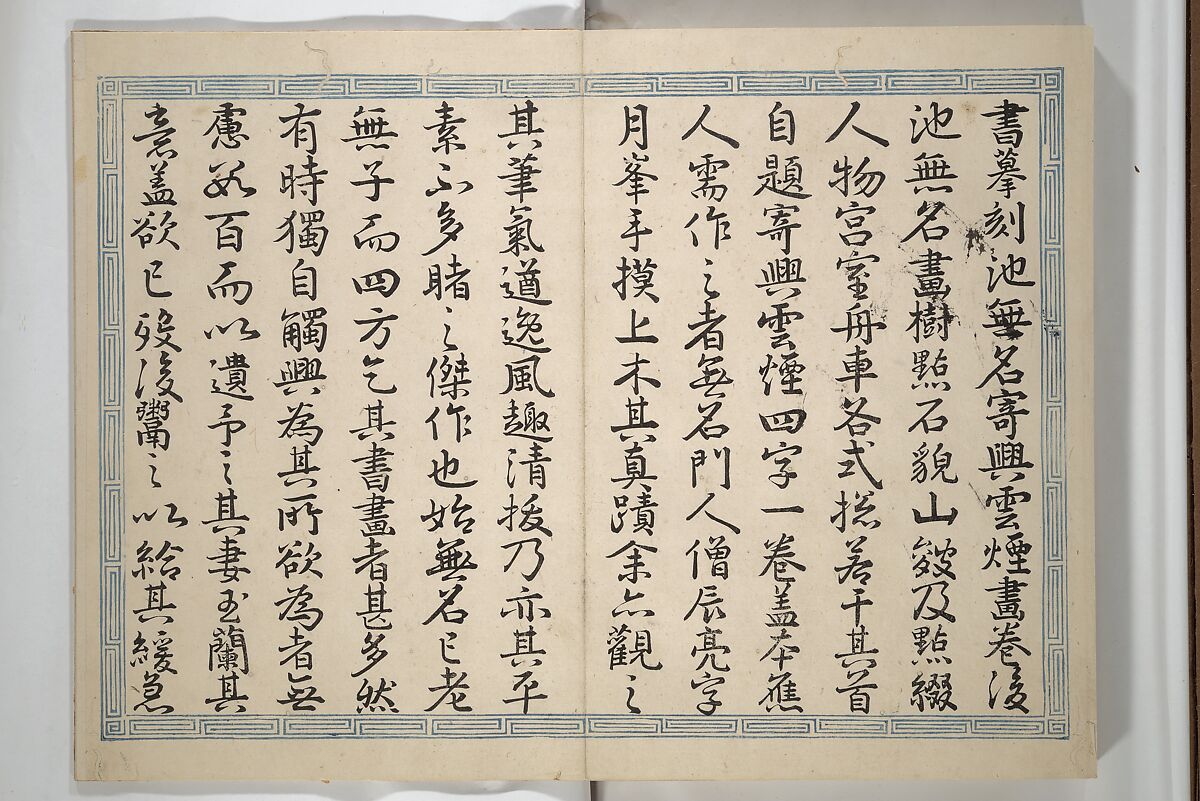 書摹刻池無名寄興雲煙畫卷後
池無名畫樹點石貌山皴及點綴
人物宮室舟車各式捴若干其首
自題寄興雲煙四字一卷盖本應
人需作之者無名門人僧辰亮字
月峯手摸上木其真蹟余亦觀之
其筆氣遒逸風趣清拔乃亦其平
素不多睹之傑作也始無名已老
無子而四方乞其書畫者甚多然
有時獨自觸興為其所欲為者無
慮数百而以遺予之其妻玉蘭其
意盖欲已歿後鬻之以給其緩急